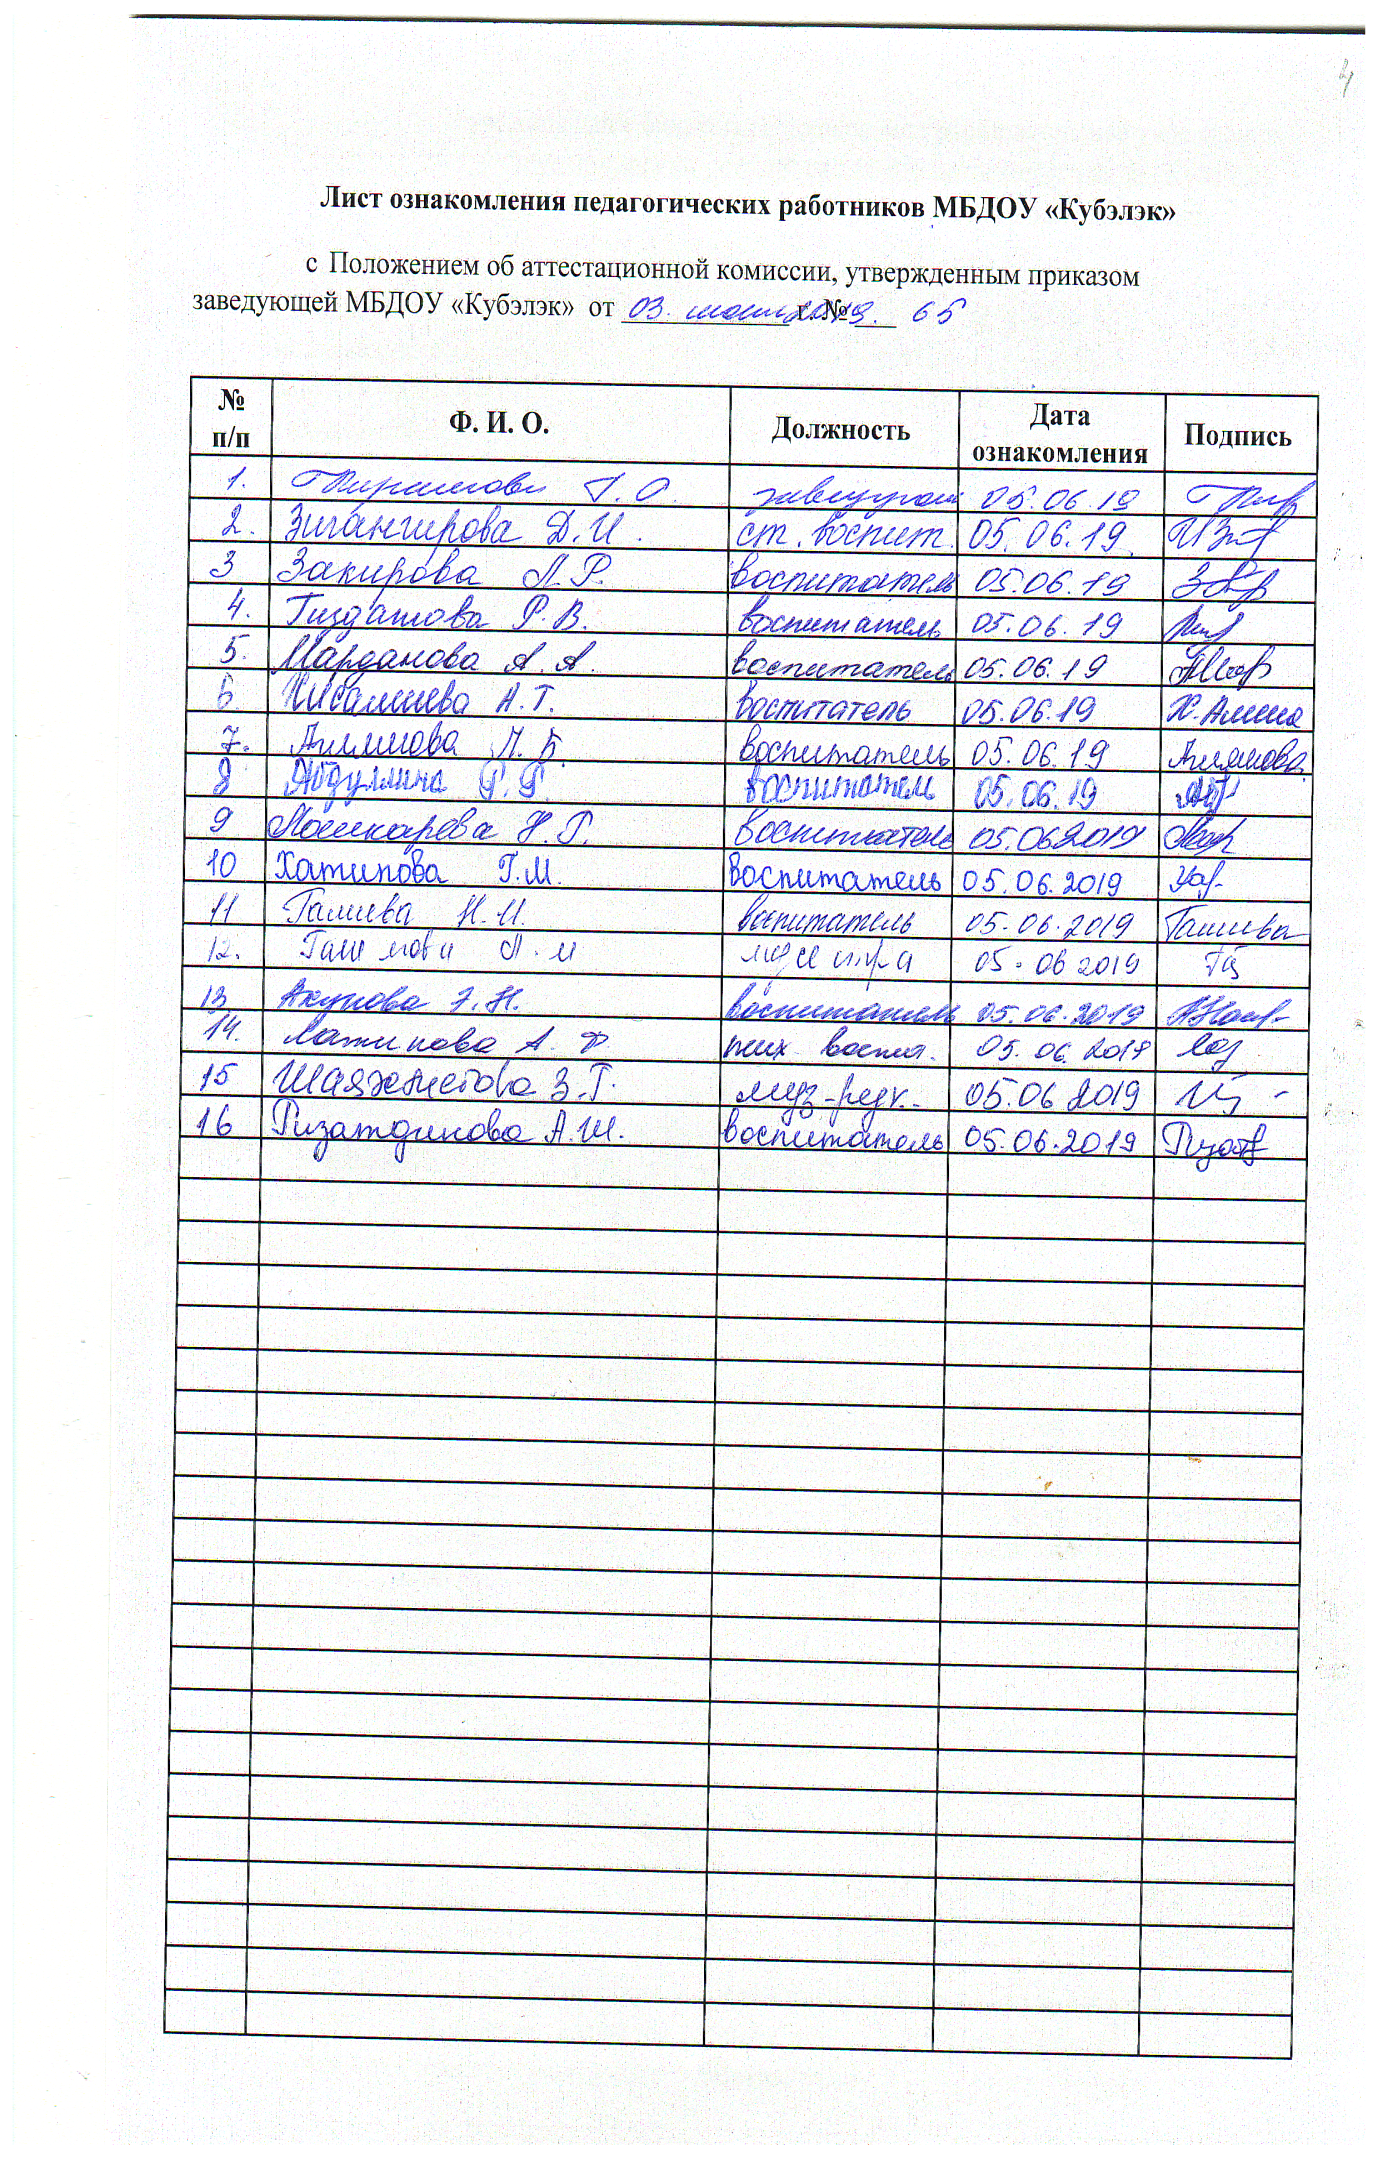 4
Лист ознакомления педагогических работников МБДОУ «Кубэлэк»
с Положением об аттестационной комиссии, утвержденным приказом
заведующей МБДОУ «Кубэлэк» от 03. 2019 г. № 65
№ п/п Ф. И. О. Должность Дата ознакомления Подпись
1. Г. О. 05.06.19
2. Зигангирова Д.И. ст. воспит. 05.06.19
3 Закирова Л.Р. воспитатель 05.06.19
4. Гиздатова Р.В. воспитатель 05.06.19
5. Марданова А.А. воспитатель 05.06.19
6. А.Т. воспитатель 05.06.19 Х.Алина
7. воспитатель 05.06.19
8 Абдуллина воспитатель 05.06.19
9 Мошкарева Н.Г. воспитатель 05.06 2019
10 Хатипова Г.М. воспитатель 05.06.2019
11 Галиева Н.И. воспитатель 05.06.2019 Галиева
12. 05.06 2019
13 Акупова воспитатель 05.06.2019
14. Латипова А. Ф. воспит. 05.06.2019
15 Шаяхметова З.Г. муз-рук. 05.06 2019
16 Ризатдинова А.Ш. воспитатель 05.06.2019